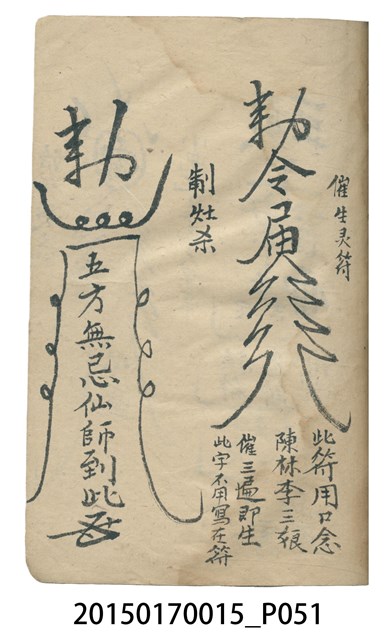 催生灵符
勅令
此符用口念
陳林李三娘
催三遍即生
此字不用寫在符
制灶杀
勅
五方無忌仙師到此
20150170015_P051